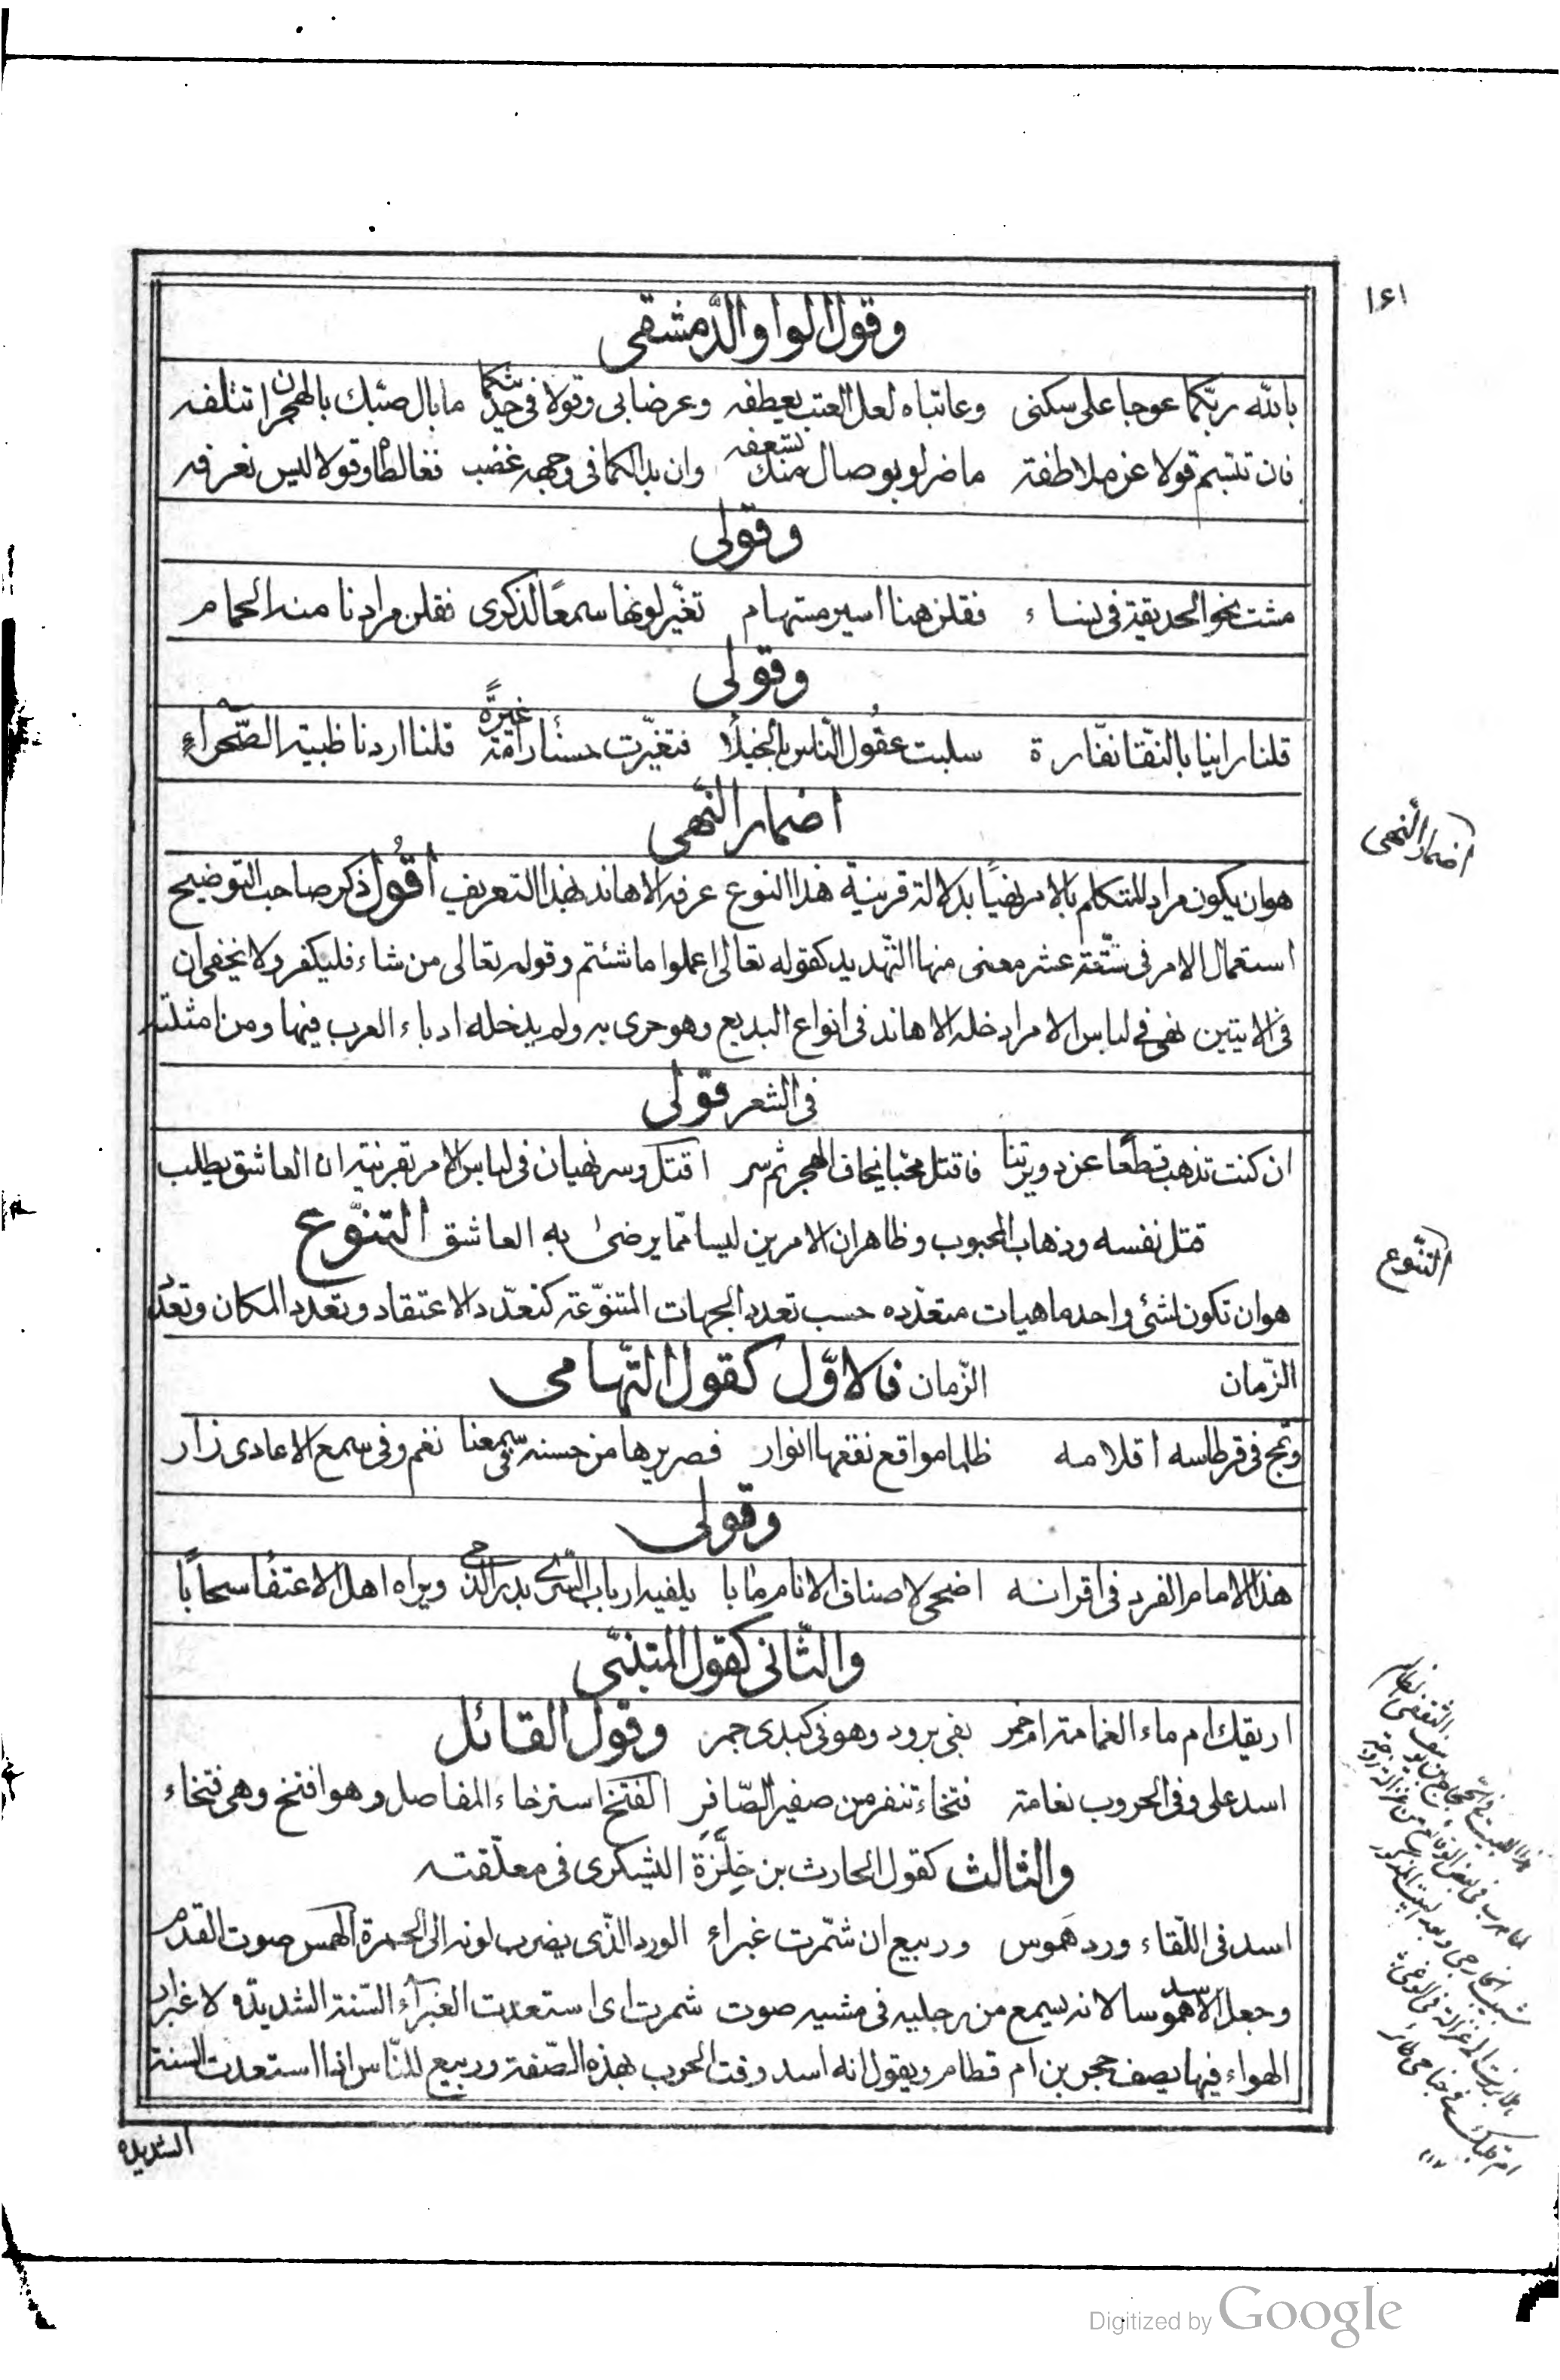 ۱۶۱
وقول الواواء الدّمشقى
بالله ربّكما عوجا على سكنى وعاتباه لعل العتب يعطفه وعرضا بى وقولا فى حديثكما ما بال صبّك بالهجران تتلفه
فان تبسّم قولا عن ملاطفة ما ضر لو بوصال منك تسعفه وان بدا لكما فى وجهه غضب فغالطاه وقولا ليس نعرفه
وقولى
مشت نحو الحديقة فى نساء فقلن هنا اسير مستهام تغيّر لونها سمعًا لذكرى فقلن مرادنا منه الحمام
وقولى
قلنا راينا بالنّقا نفّارة سلبت عقُول النّاس بالخيلا فتغيّرت حسنًا رامة غيرةً قلنا اردنا ظبية الصّحراءِ
اضمار النَّهى
هو ان يكون مراد المتكلم بالامر نهيًا بدلالة قرينية هذا النوع عرفه الاهاند بهذا التعريف اقُول ذكر صاحب التوضيح
استعمال الامر فى ستّة عشر معنى منها التّهديد كقوله تعالى اعملوا ما شئتم وقوله تعالى من شاء فليكفر ولا يخفى ان
فى الايتين نهى فى لباس الامر ادخله الاهاند فى انواع البديع وهو حرى به ولم يدخله ادباء العرب فيها ومن امثلته
فى الشعر قولى
ان كنت تذهب قطعًا عن دويرتنا فاقتل محبّا يخاف الهجر ثم سر اقتل وسر نهيان فى لباس الامر بقرينة ان العاشق يطلب
قتل نفسه وذهاب المحبوب وظاهر ان الامرين ليسا ممّا يرضى به العاشق التنوّع
هو ان تكون لشئ واحد ماهيات متعدّده حسب تعدد الجهات المتنوّعة كتعدّد الاعتقاد وتعدد المكان وتعدّد
الزّمان الزّمان فالاوّل كقول التّهامى
وتمج فى قرطاسه اقلامه ظلما مواقع نفعها انوار فصريرها من حسنه فى سمعنا نغم وفى سمع الاعادى زار
وقولى
هذا الامام الفرد فى اقرانه اضحى لاصناف الانام مابا يلفيه ارباب السّرى بدر الدّجى ويراه اهل الاعتفا سحابًا
والثّانى كقول المتنبّى
اريقك ام ماء الغمامة ام خمر بفى برود وهو فى كبدى جمر وقول القائل
اسد على وفى الحروب نعامة فتخاء تنفر من صفير الصّافر الفتخ استرخاء المفاصل وهو افتخ وهى فتخاء
والثالث كقول الحارث بن حِلَّزَة اليشكرى فى معلّقته
اسد فى اللّقاء ورد هَموس وربيع ان شمّرت غبراءُ الورد الّذى يضرب لونه الى الحمرة الهمس صوت القدم
وجعل الاسد هموسا لانه يسمع من رجليه فى مشيه صوت شمرت اى استعدت الغبرآء السّنة الشديدة لاغبرار
الهواء فيها يصف حجر بن ام قطام ويقول انه اسد وقت الحرب بهذه الصّفة وربيع للنّاس اذا استعدت السنة
الشديدة
اضمار النّهى
التنّوع
Digitized by Google